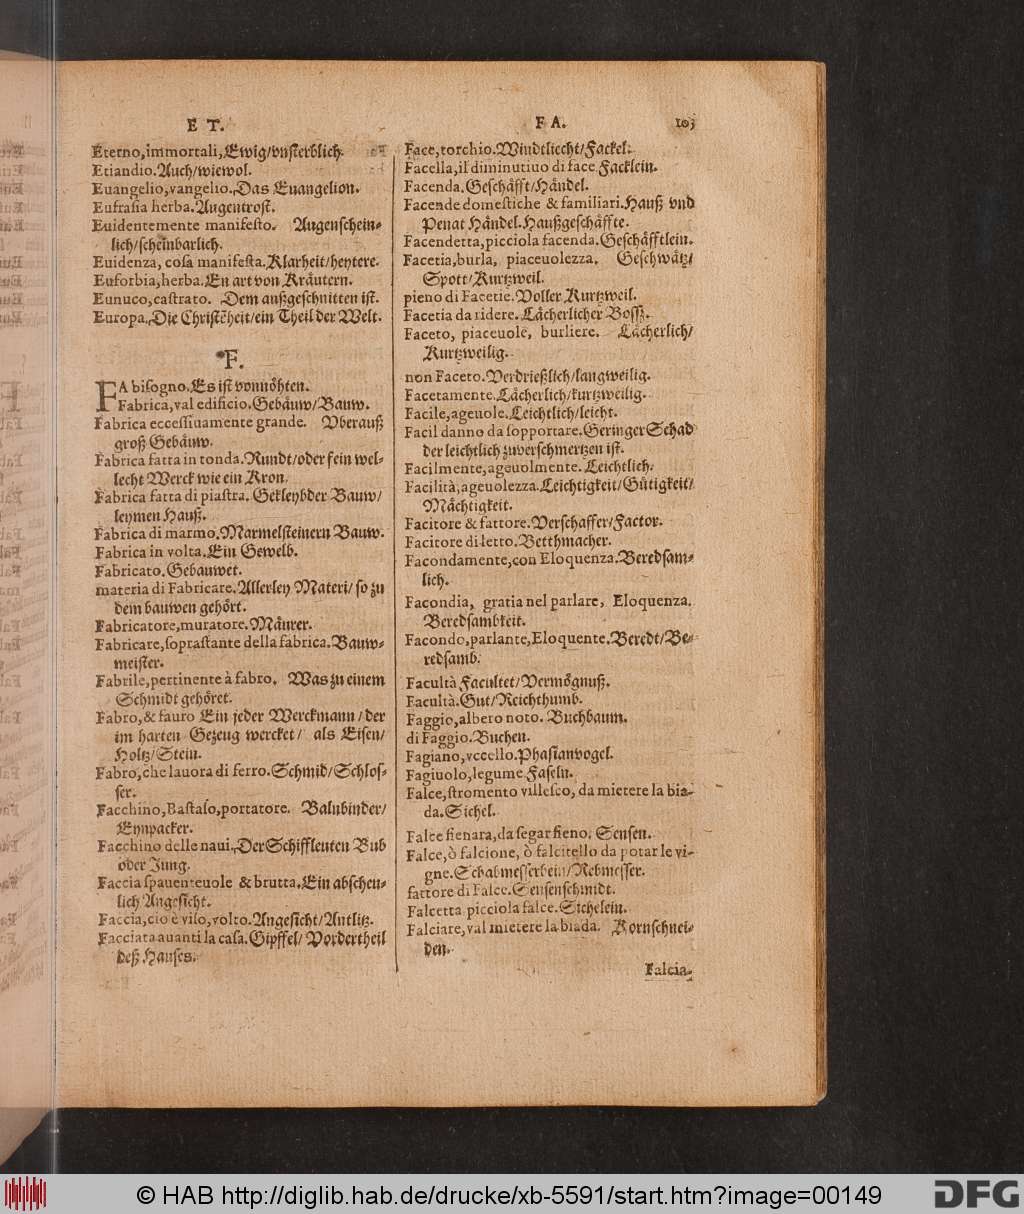 E T.
Eterno,immortali,Ewig/vnsterblich.
Etiandio.Auch/wiewol.
Euangelio,vangelio.Das Euangelion.
Eufrasia herba.Augentrost.
Euidentemente manifesto. Augenschein-
lich/scheinbarlich.
Euidenza, cosa manifesta.Klarheit/heytere.
Euforbia,herba.En art von Kräutern.
Eunuco,castrato. Dem außgeschnitten ist.
Europa.Die Christēheit/ein Theil der Welt.
F.
FA bisogno.Es ist vonnöhten.
Fabrica,val edificio.Gebäuw/Bauw.
Fabrica eccessiuamente grande. Vberauß
groß Gebäuw.
Fabrica fatta in tonda.Rundt/oder sein wel-
lecht Werck wie ein Kron.
Fabrica fatta di piastra. Gekleybder Bauw/
leymen Hauß.
Fabrica di marmo.Marmelsteinern Bauw.
Fabrica in volta.Ein Gewelb.
Fabricato.Gebauwet.
materia di Fabricare.Allerley Materi/ so zu
dem bauwen gehört.
Fabricatore,muratore.Mäurer.
Fabricare,soprastante della fabrica.Bauw-
meister.
Fabrile,pertinente à fabro. Was zu einem
Schmidt gehöret.
Fabro,& fauro Ein jeder Werckmann/der
im harten Gezeug wercket/ als Eisen/
Holtz/Stein.
Fabro,che lauora di ferro.Schmid/Schlos-
ser.
Facchino,Bastaso,portatore. Balnbinder/
Eynpacker.
Facchino delle naui.Der Schiffleuten Bub
oder Jung.
Faccia spauenteuole & brutta.Ein abscheu-
lich Angesicht.
Faccia,cio è viso,volto.Angesicht/Antlitz.
Facciata auanti la casa.Gipffel/ Vordertheil
deß Hauses.
F A. 103
Face,torchio.Windtliecht/Fackel.
Facella,il diminutiuo di face.Facklein.
Facenda.Geschäfft/Händel.
Facende domestiche & familiari.Hauß vnd
Penat Händel.Haußgeschäffte.
Facendetta,picciola facenda.Geschäfftlein.
Facetia,burla, piaceuolezza. Geschwätz/
Spott/Kurtzweil.
pieno di Facetie.Voller Kurtzweil.
Facetia da ridere.Lächerlicher Bosss.
Faceto, piaceuole, burliere. Lächerlich/
Kurtzweilig.
non Faceto.Verdrießlich/langweilig.
Facetamente.Lächerlich/kurtzweilig.
Facile,ageuole.Leichtlich/leicht.
Facil danno da sopportare.Geringer Schad
der leichtlich zuverschmertzen ist.
Facilmente,ageuolmente.Leichtlich.
Facilità,ageuolezza.Leichtigkeit/Gütigkeit/
Mächtigkeit.
Facitore & fattore.Verschaffer/Factor.
Facitore di letto.Betthmacher.
Facondamente,con Eloquenza.Beredsam-
lich.
Facondia, gratia nel parlare, Eloquenza.
Beredsambkeit.
Facondo,parlante,Eloquente.Beredt/Be-
redsamb.
Facultà Facultet/Vermögnuß.
Facultà.Gut/Reichthumb.
Faggio,albero noto. Buchbaum.
di Faggio.Buchen.
Fagiano,vccello.Phasianvogel.
Fagiuolo,legume.Faseln.
Falce,stromento villesco, da mietere la bia-
da.Sichel.
Falce fienara,da segar fieno. Sensen.
Falce,ò falcione, ò falcitello da potar le vi-
gne.Schabmesserbein/Rebmesser.
fattore di Falce.Sensenschmidt.
Falcetta picciola falce.Sichelein.
Falciare,val mietere la biada. Kornschnei-
den.
Falcia-
© HAB http://diglib.hab.de/drucke/xb-5591/start.htm?image=00149
DFG